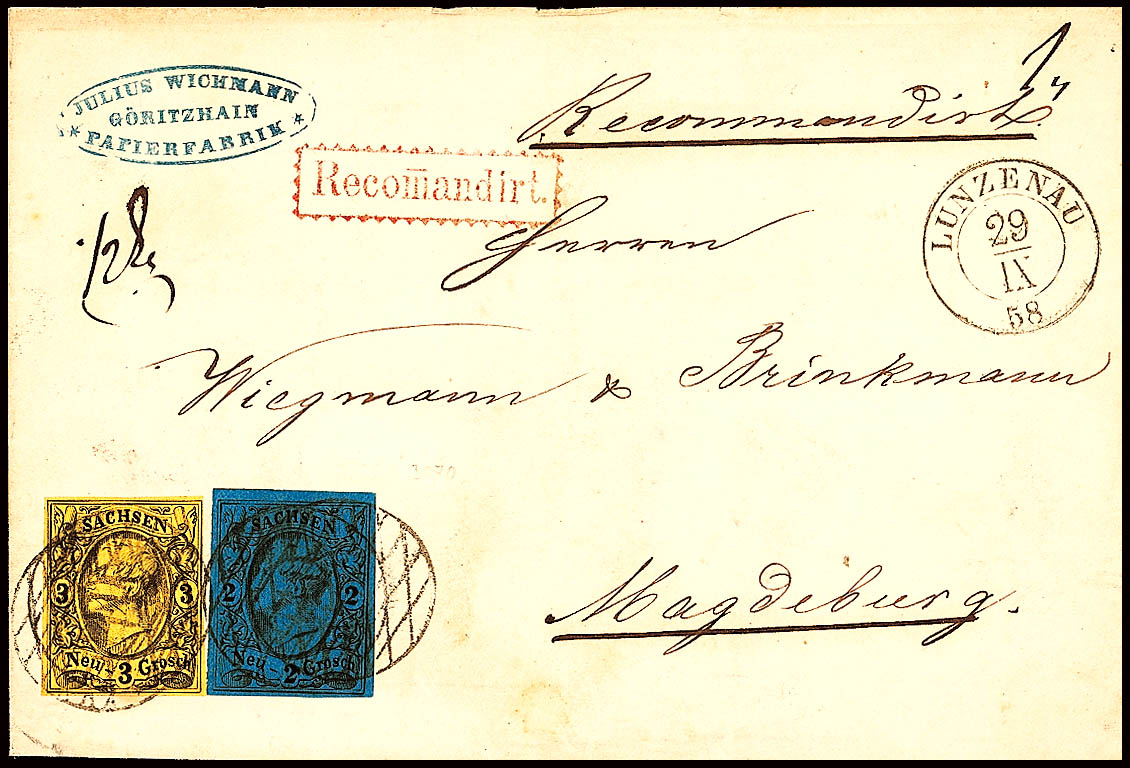 JULIUS WICHMANN
GÖRITZHAIN
* PAPIERFABRIK *
Recommandirt
Recom̄andirt.
LUNZENAU
29
IX
58
Herren
Wiegmann & Brinkmann
Magdeburg.
SACHSEN
3 3
Neu-3 Grosch
SACHSEN
2 2
Neu-2 Grosch